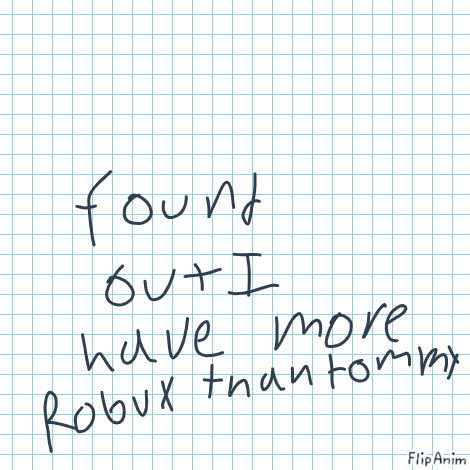 found
out I
have more
Robux than tommy
FlipAnim